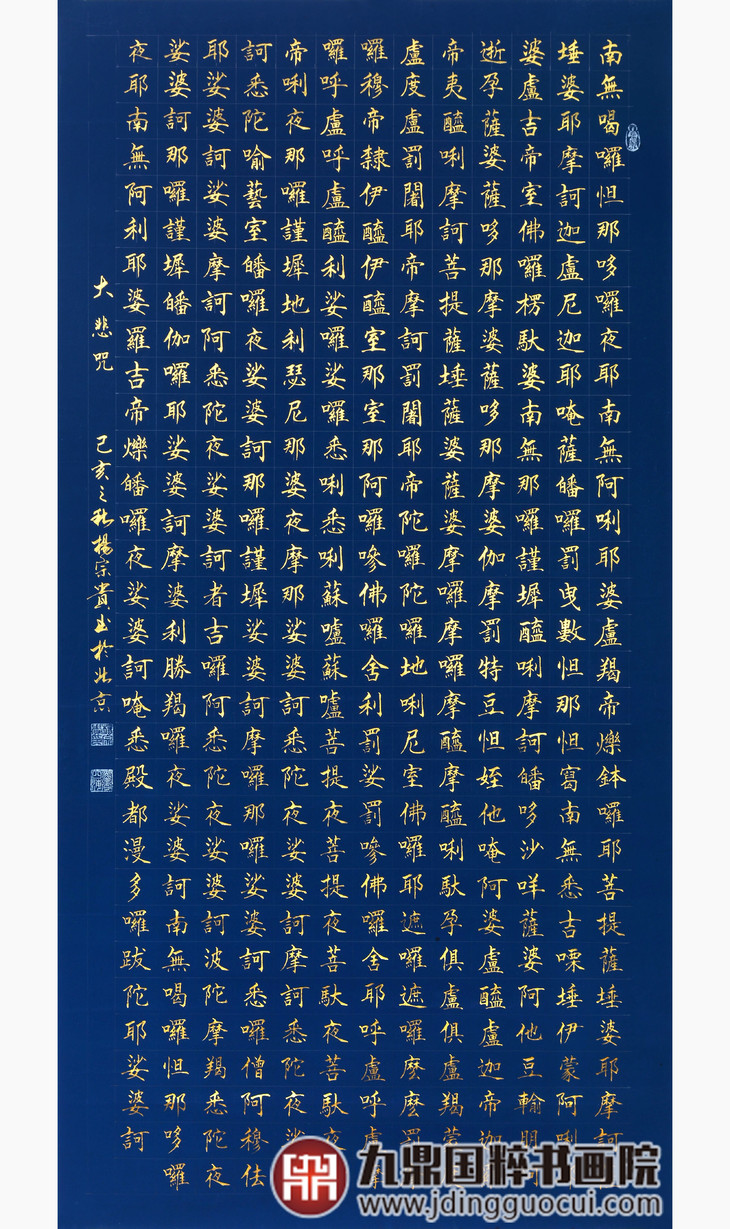 南無喝囉怛那哆囉夜耶南無阿唎耶婆盧羯帝爍鉢囉耶菩提薩埵婆耶摩訶
埵婆耶摩訶迦盧尼迦耶唵薩皤囉罰曳數怛那怛寫南無悉吉嘌埵伊蒙阿唎
婆盧吉帝室佛囉楞馱婆南無那囉謹墀醯唎摩訶皤哆沙咩薩婆阿他豆輸朋
逝孕薩婆薩哆那摩婆薩哆那摩婆伽摩罰特豆怛姪他唵阿婆盧醯盧迦帝迦
帝夷醯唎摩訶菩提薩埵薩婆薩婆摩囉摩囉摩醯摩醯唎馱孕俱盧俱盧羯蒙
盧度盧罰闍耶帝摩訶罰闍耶帝陀囉陀囉地唎尼室佛囉耶遮囉遮囉麼麼罰
囉穆帝隸伊醯伊醯室那室那阿囉嘇佛囉舍利罰娑罰嘇佛囉舍耶呼盧呼盧摩
囉呼盧呼盧醯利娑囉娑囉悉唎悉唎蘇嚧蘇嚧菩提夜菩提夜菩馱夜菩馱夜
帝唎夜那囉謹墀地利瑟尼那婆夜摩那娑婆訶悉陀夜娑婆訶摩訶悉陀夜娑
訶悉陀喻藝室皤囉夜娑婆訶那囉謹墀娑婆訶摩囉那囉娑婆訶悉囉僧阿穆佉
耶娑婆訶娑婆摩訶阿悉陀夜娑婆訶者吉囉阿悉陀夜娑婆訶波陀摩羯悉陀夜
娑婆訶那囉謹墀皤伽囉耶娑婆訶摩婆利勝羯囉夜娑婆訶南無喝囉怛那哆囉
夜耶南無阿利耶婆羅吉帝爍皤囉夜娑婆訶唵悉殿都漫多囉跋陀耶娑婆訶
大悲咒 己亥之秋楊宗貴書於北京
九鼎国粹书画院
www.jdingguocui.com